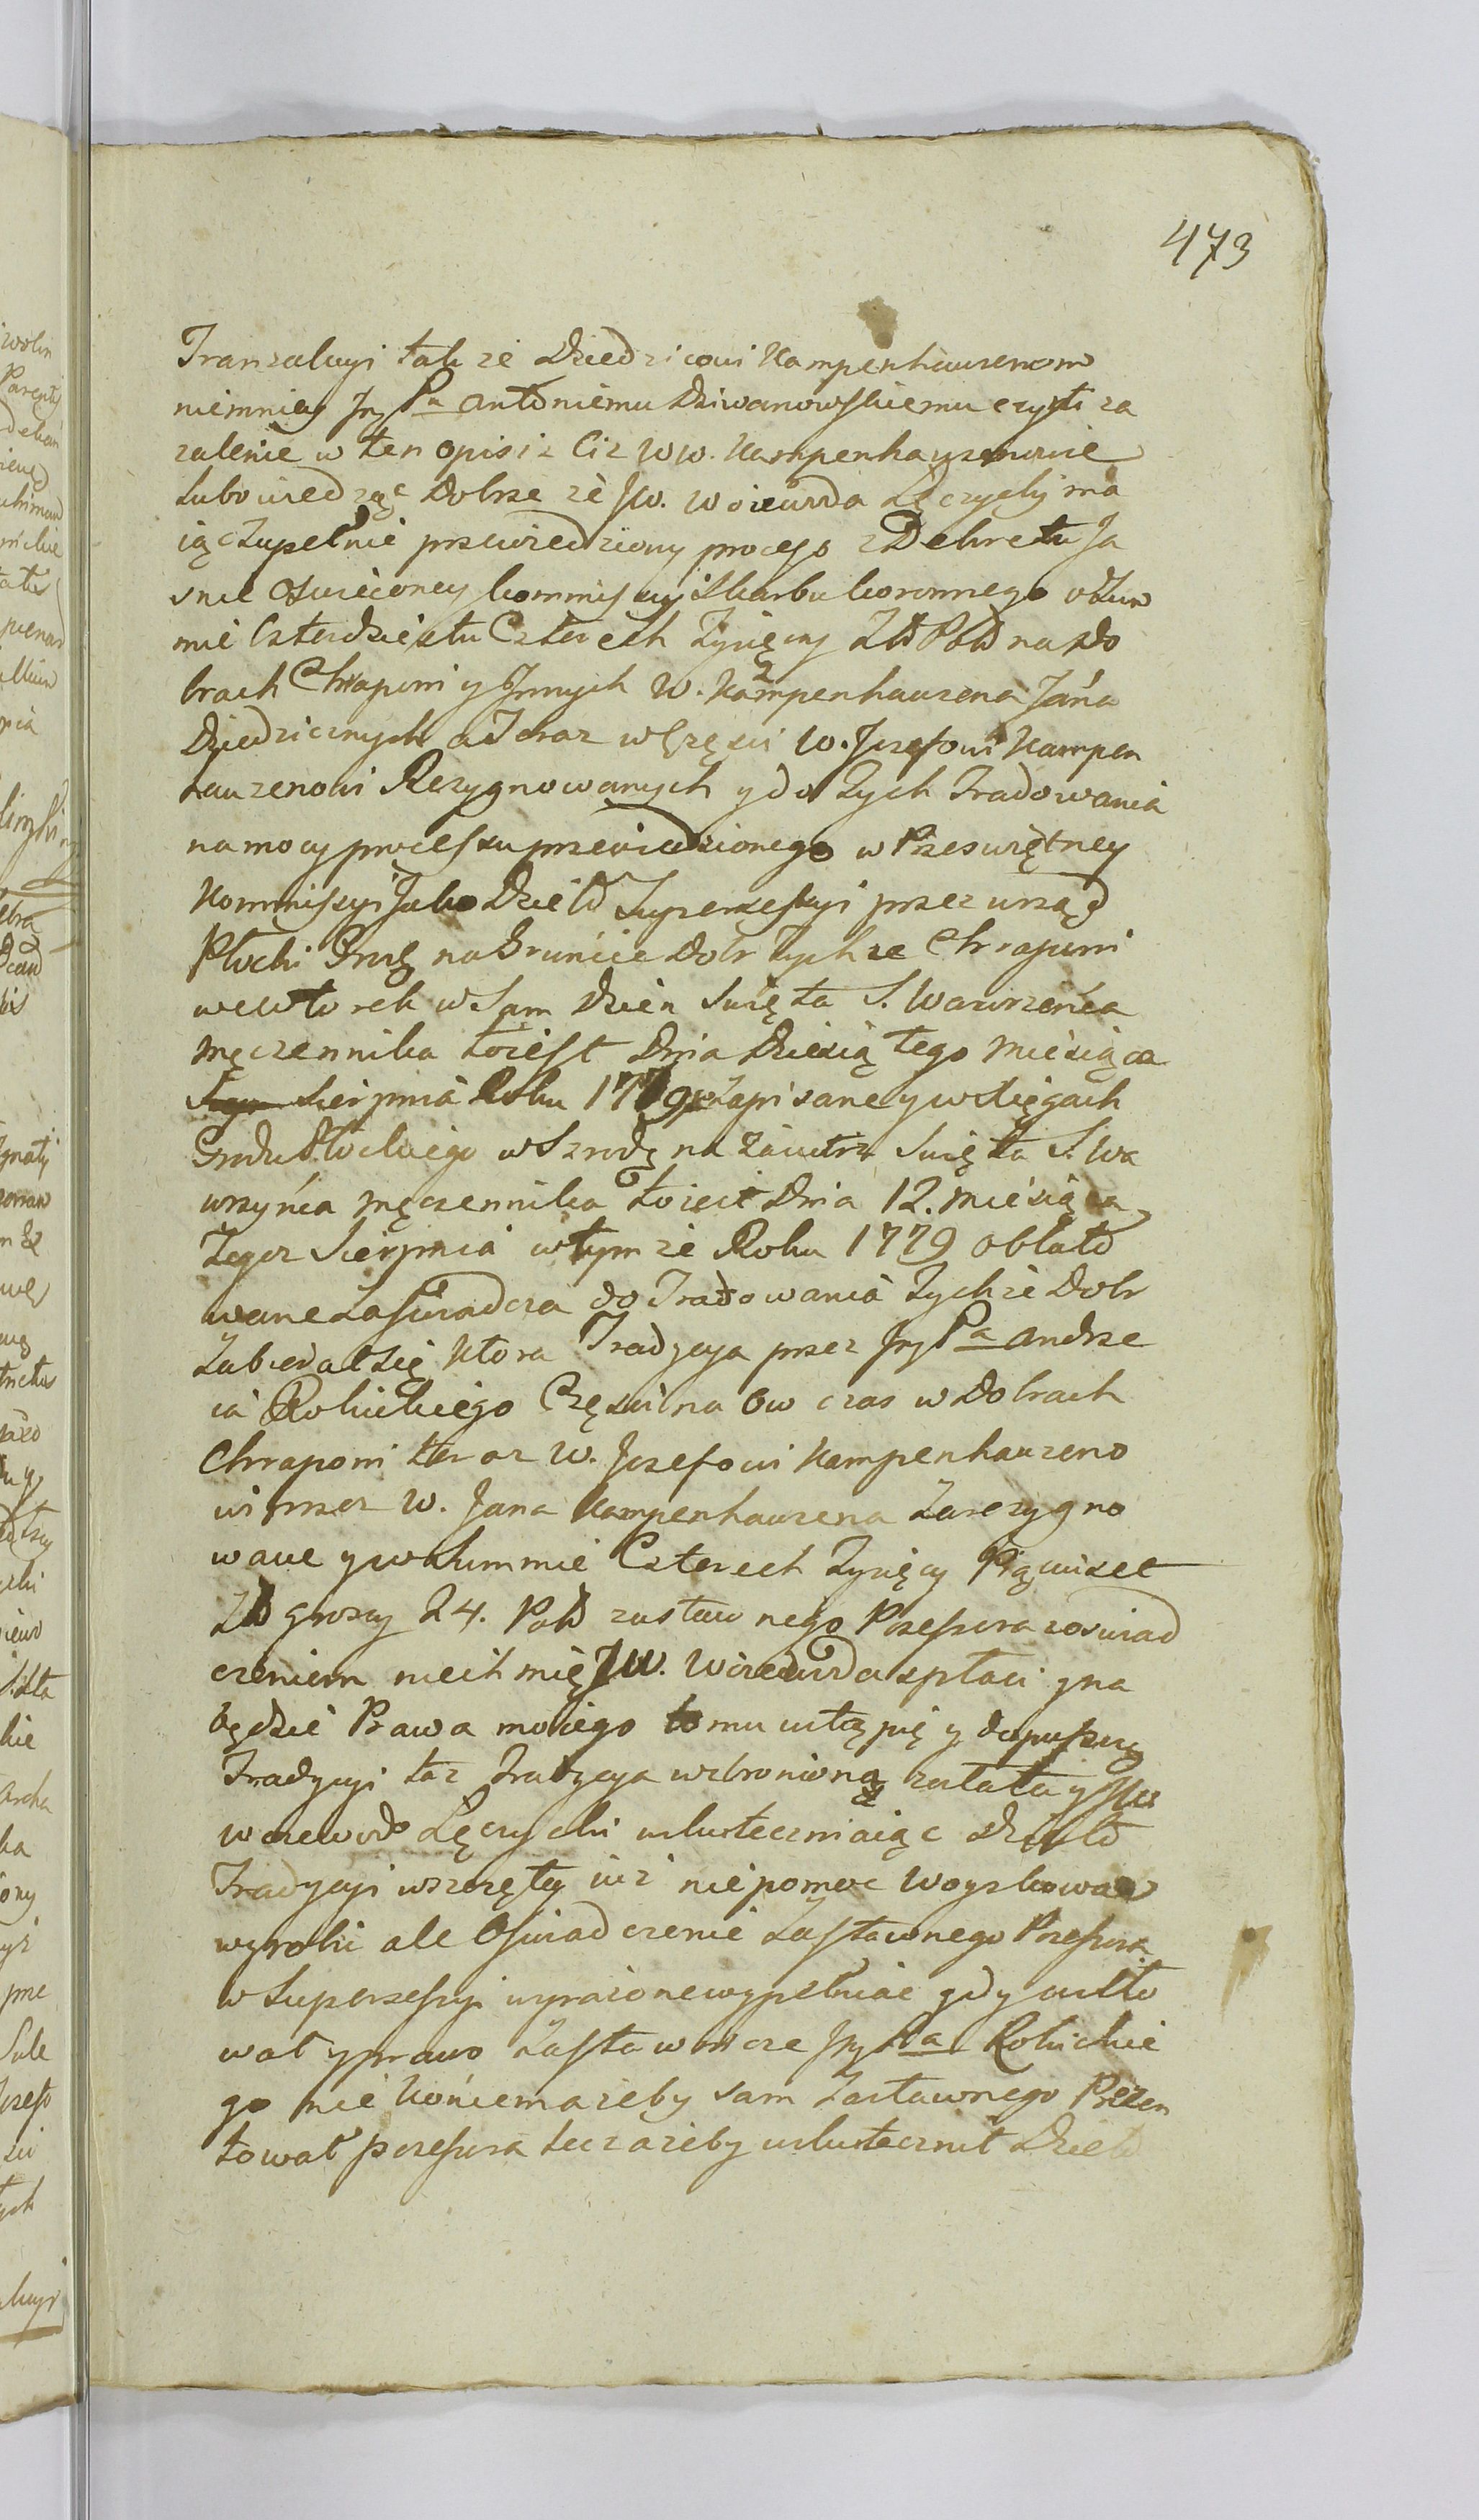 473
Tranzakcyi także Dziedzicowi Kampenhauzenom
niemniey Jmć Pu Antoniemu Dziwanowskiemu czyste za
zalenie w ten opis iz Ciz WW. Kampenhauzenowie
Lubo wiedząc Dobrze że JW. Woiewoda Łęczycky ma
iąc Zupełnie przewiedziony process z Dekretu Ja
snie Oswieconey kommissyi Skarbu koronnego o Sum
mie Czterdziestu Czterech Tysięcy Złł Poll na Do
brach Chrapuni y Jnnych W. Kampenhauzena Jana
Dziedzicznych a Teraz w Części W. Jozefowi Kampen
hauzenowi Rezygnowanych y do Tych Tradowania
na mocy processu przewiedzionego w Przeświętney
Kommissyi Jako Dzieło Supersessyi przez urząd
Płocki Grodz na Gruncie Dobr Tychże Chrapuni
we Wtorek w Sam Dzien Swięta S. Wawrzeńca
Męczennika toiest Dnia Dziesiątego Miesiąca
Sierpnia Roku 1779 Zapisane y w Xięgach
Grodu Płockiego w Szrodę na zaiutrz Swięta S. Wa
wrzyńca Męczennika toiest Dnia 12. Miesiąca
Tegoz Sierpnia w tymże Roku 1779 oblato
wane Zaswiadcza do Tradowania Tychże Dobr
Zabierał się Ktora Tradycya przez Jmć Pa Andrze
ia Rokickiego Części na ow czas w Dobrach
Chraponi teraz W. Jozefowi Kampenhauzeno
wi przez W. Jana Kampenhauzena Zarezygno
wane y w Summie Czterech Tysięcy Pięciuset
Złł groszy 24. Poll zastawnego Possesora z oswiad
czeniem niech mię JW. Woiewoda spłaci y na
będzie Prawa moiego to mu ustąpię y dopuszczę
Tradycyi taz Tradycya wzbronioną została y JW
Woiewoda Łęczycki uskuteczniaiąc Dzieło
Tradycyi wszczętey iuż nie pomoc Woyskową
wyrobić ale Oświadczenie Zastawnego Possesora
w Supersessyi wyrażone wypełniac gdy usiło
wał y prawo Zastawnicze Jmć Pa Rokickie
go nie Końcem ażeby sam Zastawnego Prezen
tował possesora lecz ażeby uskutecznił Dzieło